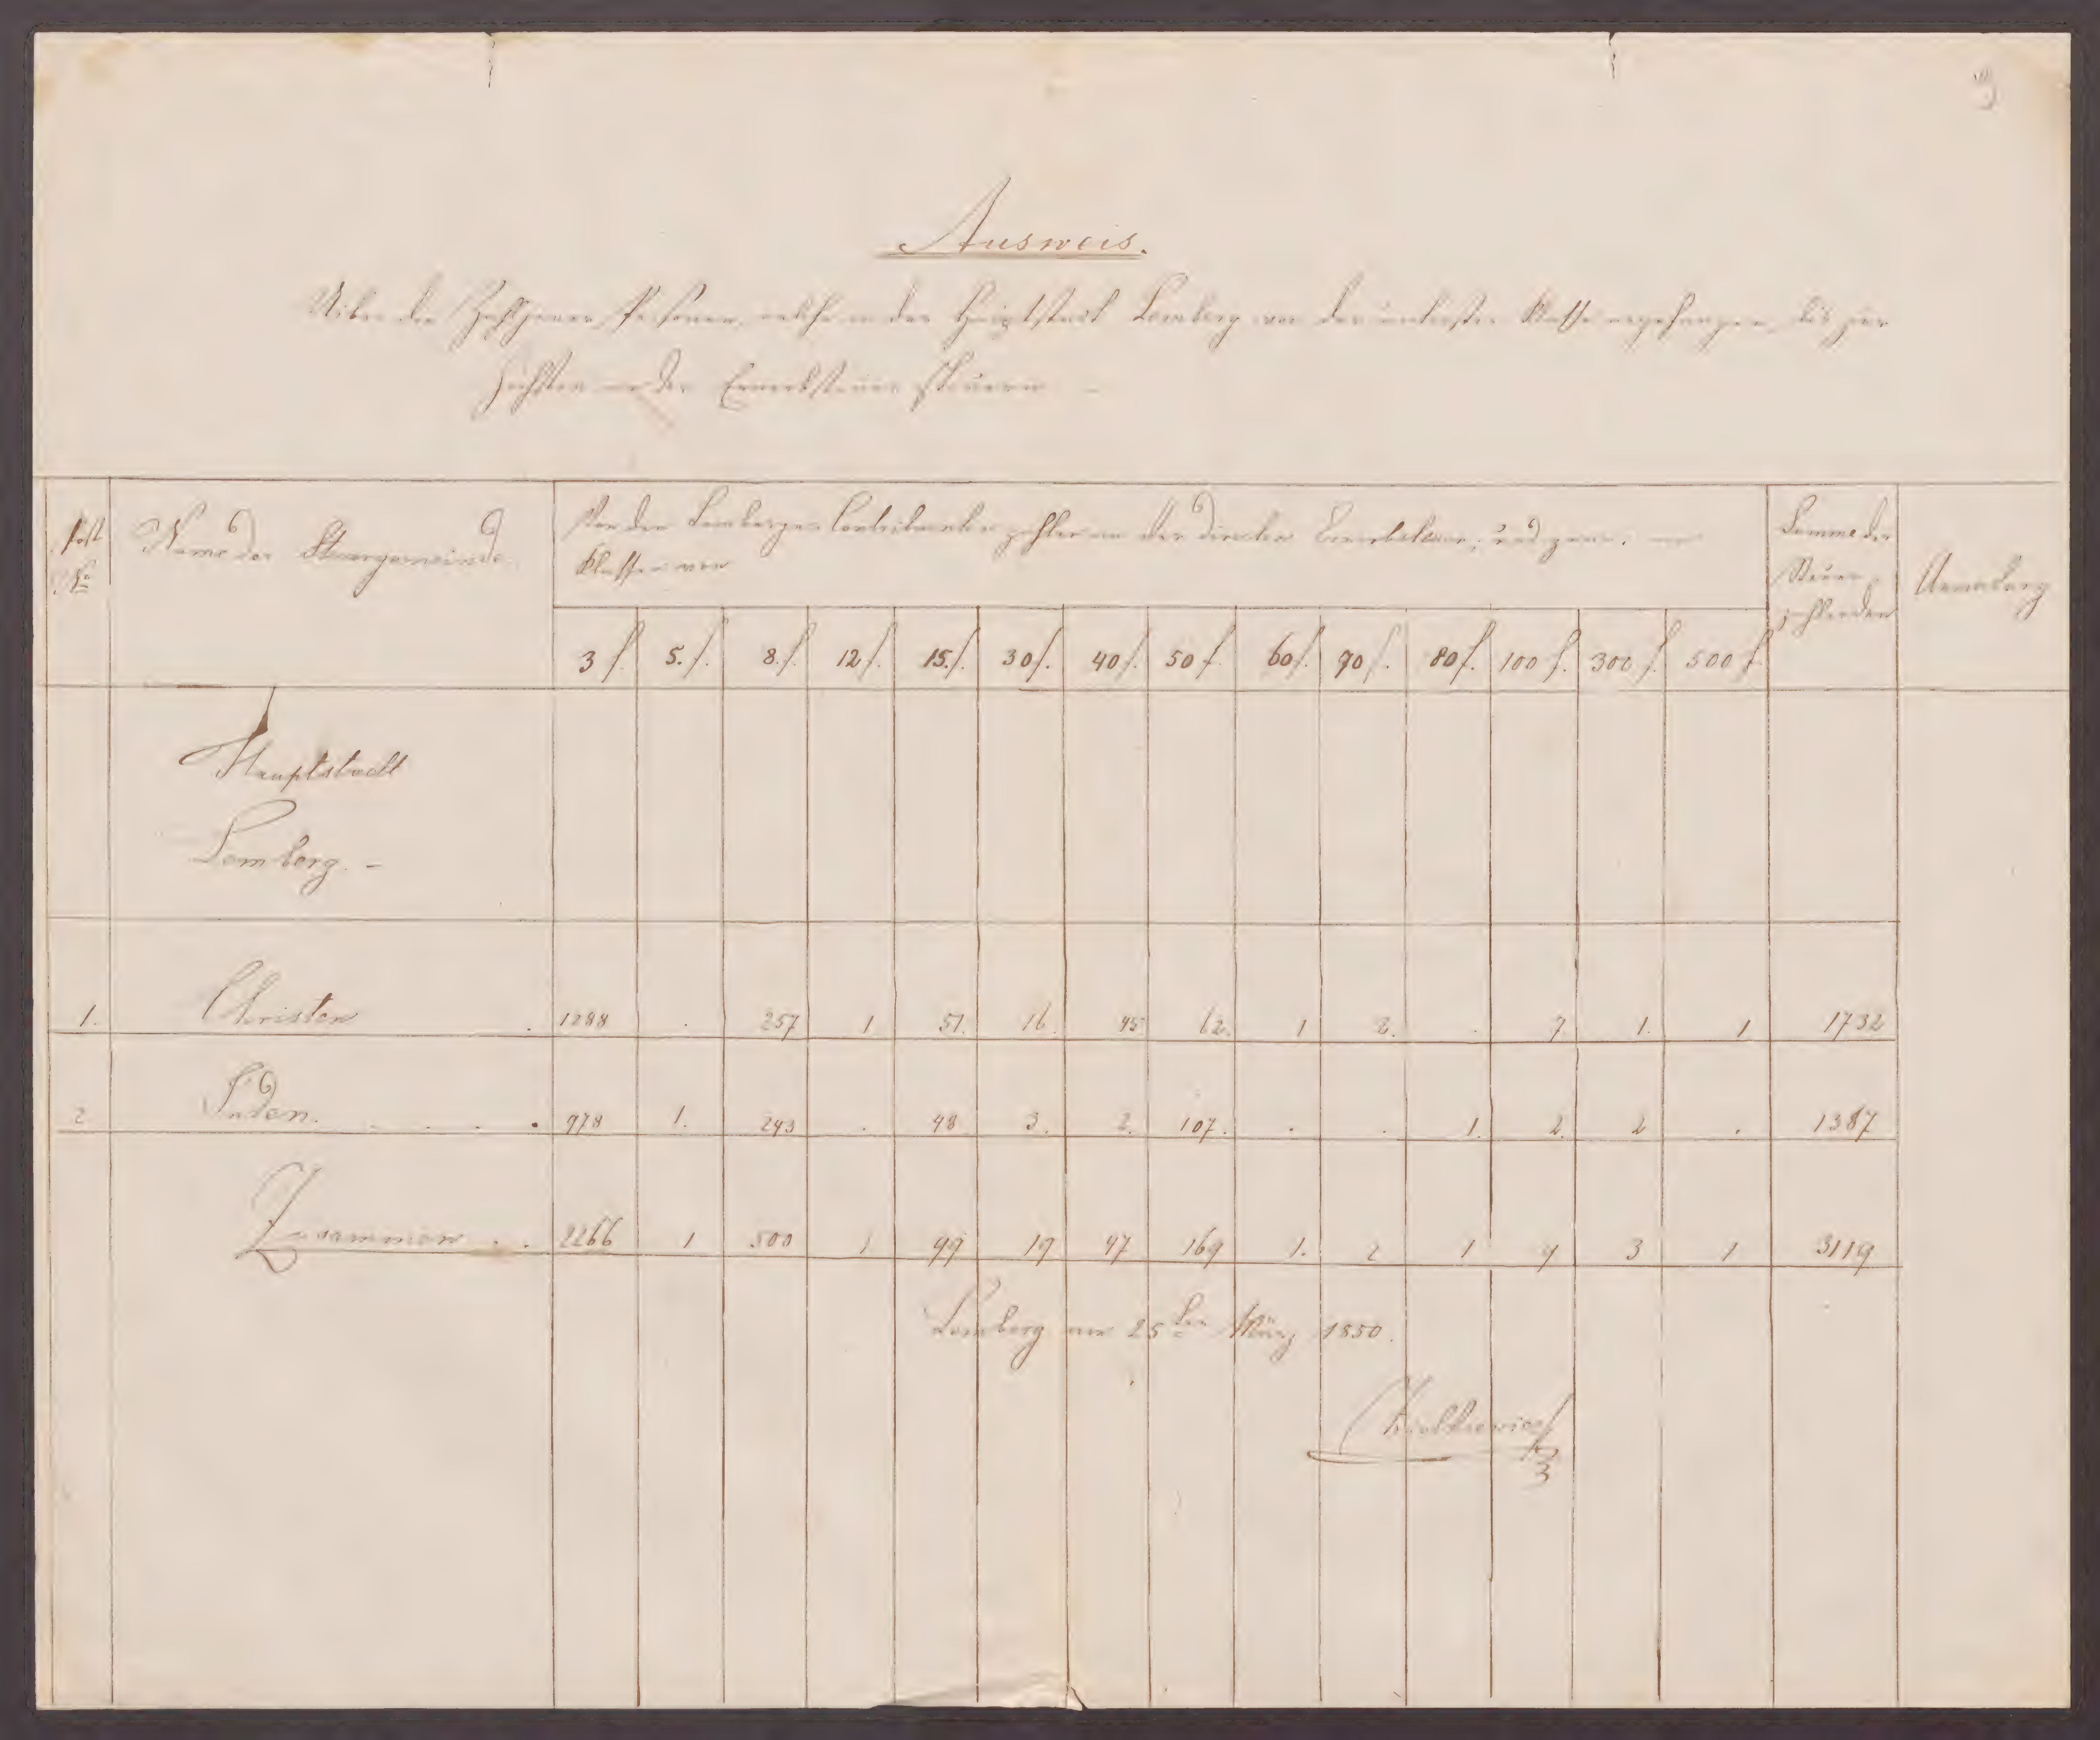 9
Ausweis.
Uiber die Zahl jener Personen, welche in der Hauptstadt Lemberg von der untersten Klasse angefangen bis zur
höchsten an der Erwerbsteuer steuern –
Post No
Name der Steuergemeinde
Von den Lemberger Contribuenten zahlen an der direkten Erwerbsteuer, und zwar: an
Klassen von
Summe der
Steuer
zahlenden
Anmerkung
3 f. 5. f. 8. f. 12 f. 15. f. 30 f. 40 f. 50 f. 60 f. 70 f. 80 f. 100 f. 300 f. 500 f.
Hauptstadt
Lemberg. –
1. Christen . 1288 . 257 1 51. 16. 45 62. 1 2. . 7. 1. 1 1732
2 Juden. . . . . 978 1. 243 . 48 3. 2. 107. . . 1. 2. 2 . 1387
Zusammen . . 2266 1 500 1 99 19 47 169 1. 2 1 9 3 1 3119
Lemberg am 25ten März 1850.